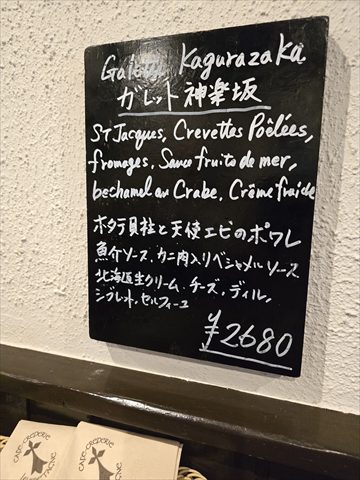 Galette Kagurazaka
ガレット神楽坂
ST Jacques, Crevettes Poêlées,
fromages, Sauce fruits de mer,
bechamel au Crabe, Crème fraiche
ホタテ貝柱と天使エビのポワレ
魚介ソース、カニ肉入りベシャメルソース
北海道生クリーム、チーズ、ディル、
シブレット、セルフィーユ
¥2680
CAFE CREPERIE
CAFE CREPERIE